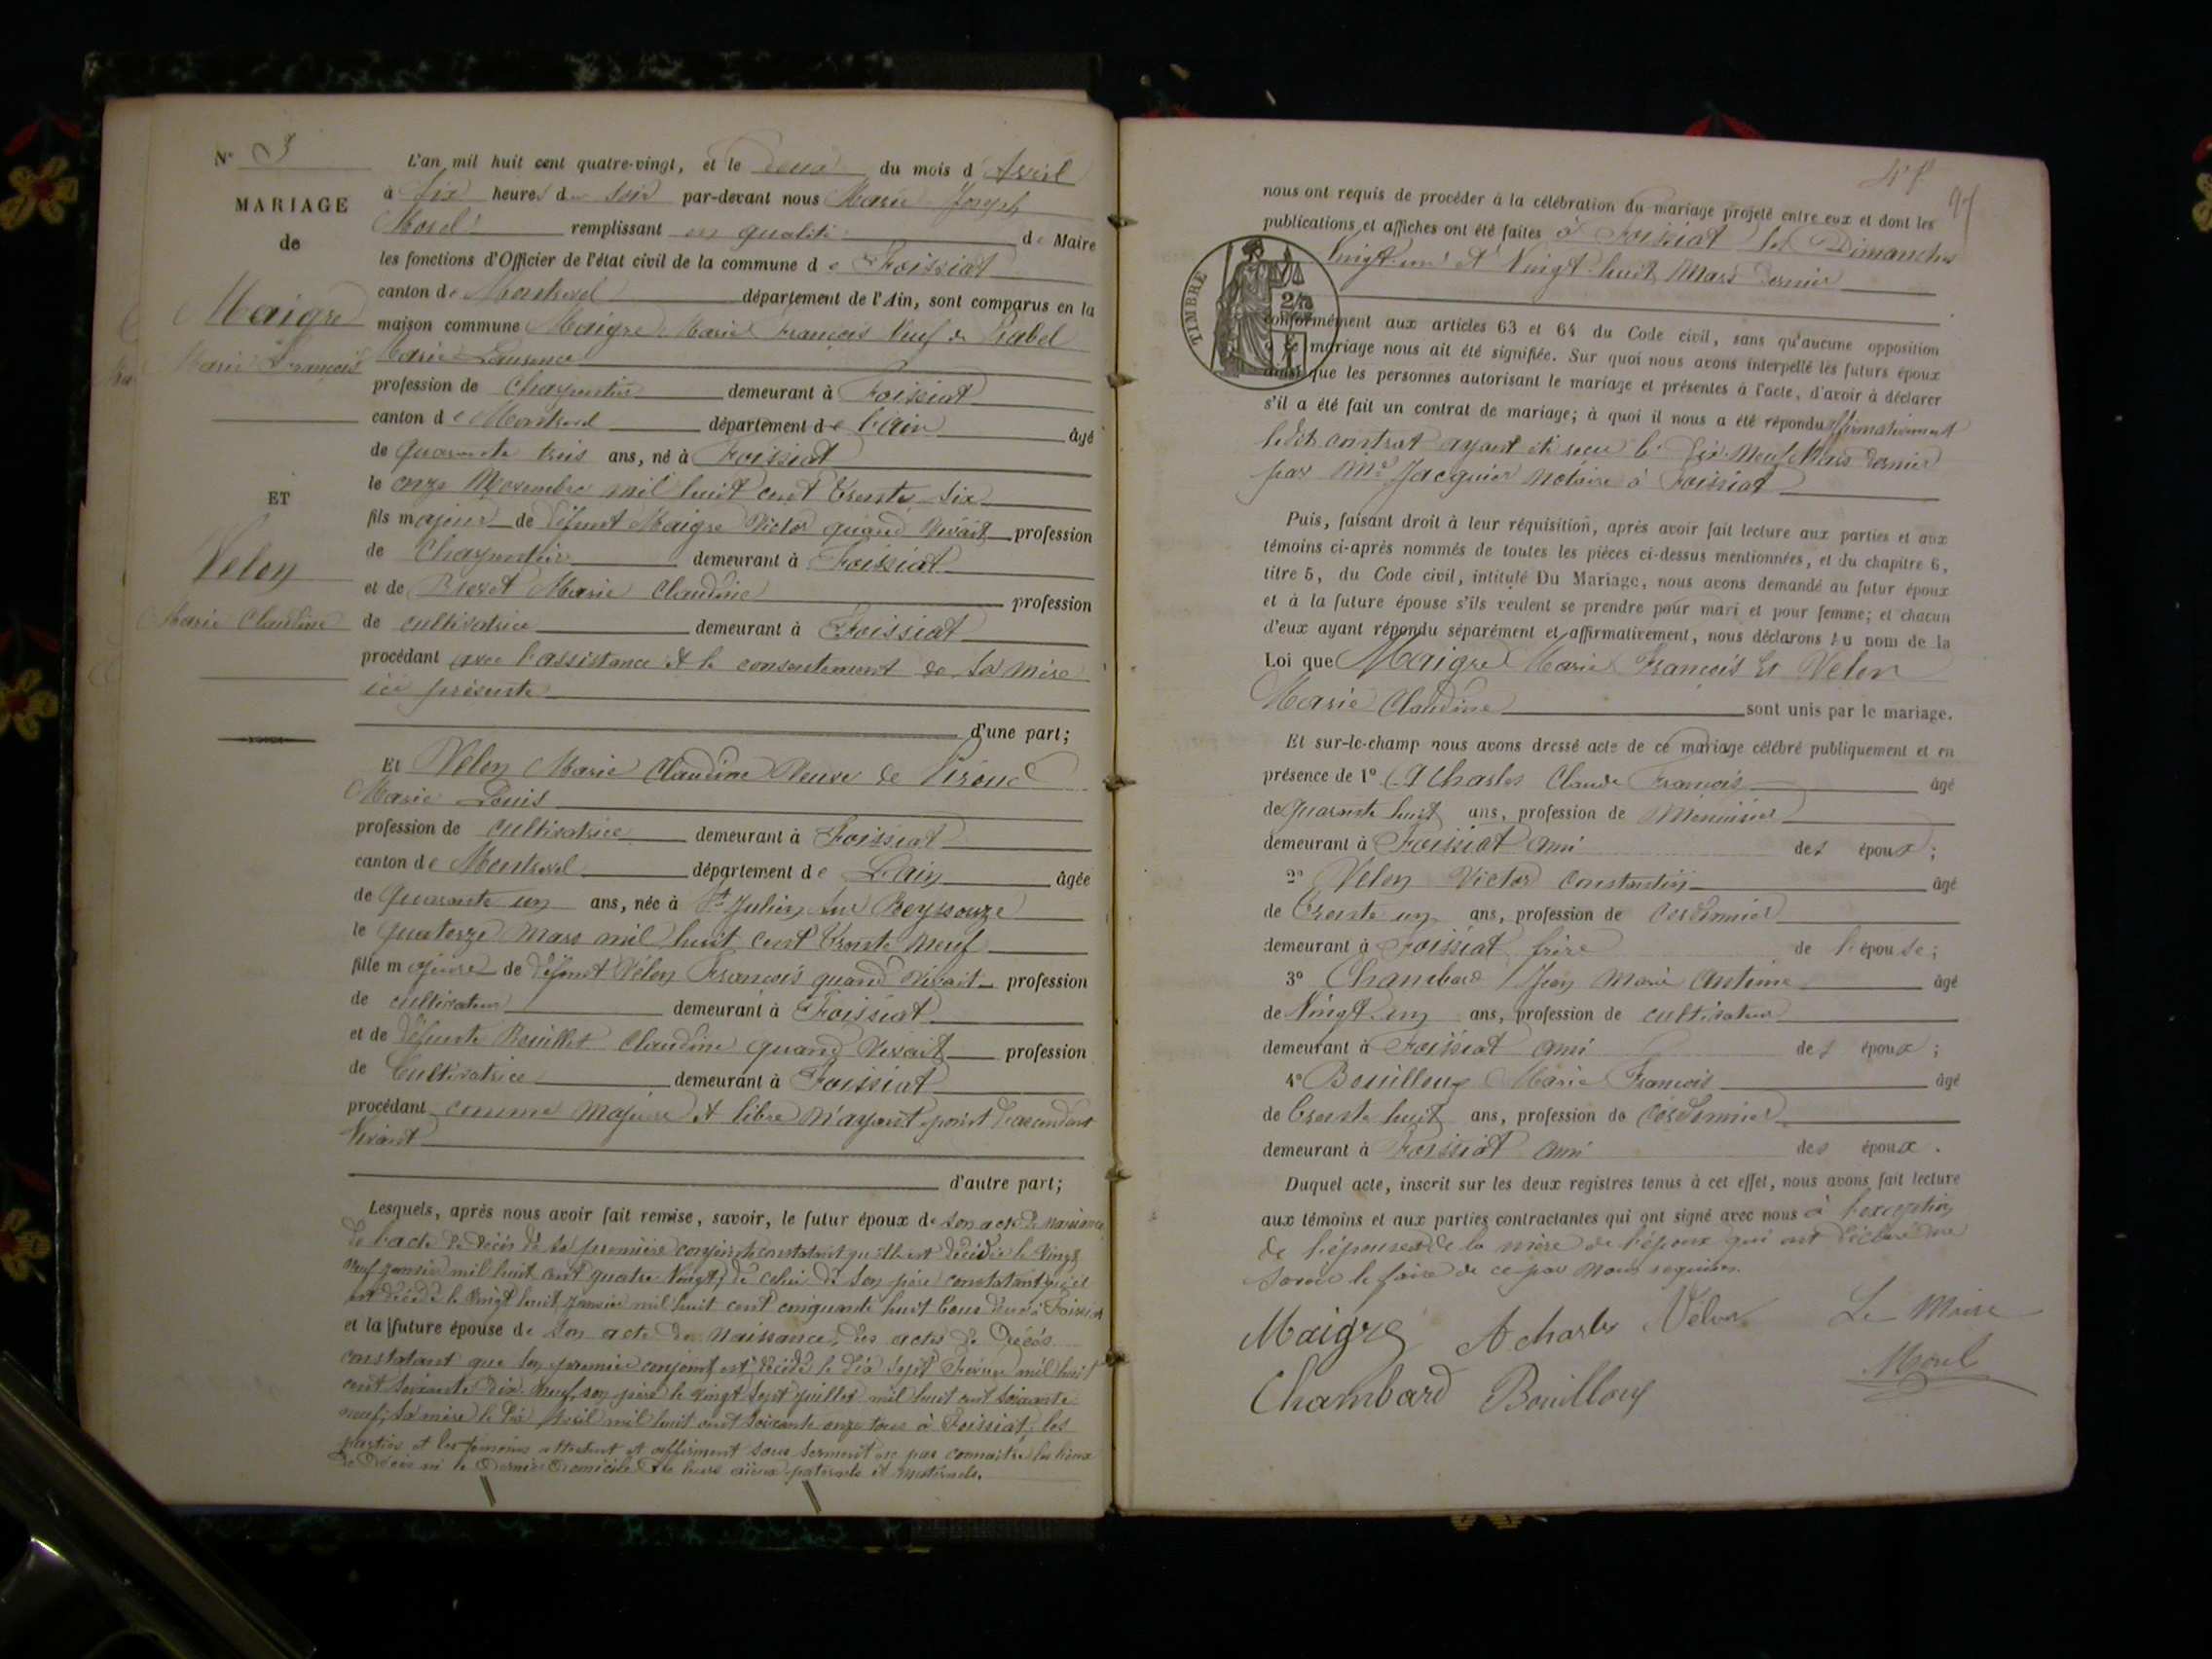 N° 3
MARIAGE
de
Maigre
Marie François
ET
Velon
Marie Claudine
L'an mil huit cent quatre-vingt, et le deux du mois d'Avril
à six heures du soir par-devant nous Marie Joseph
Morel remplissant en qualité de Maire
les fonctions d'Officier de l'état civil de la commune de Foissiat
canton de Montrevel département de l'Ain, sont comparus en la
maison commune Maigre Marie François Veuf de Rabel
Marie Laurence
profession de charpentier demeurant à Foissiat
canton de Montrevel département de l'ain âgé
de quarante trois ans, né à Foissiat
le onze Novembre mil huit cent trente-six
fils majeur de défunt Maigre Victor quand vivait profession
de Charpentier demeurant à Foissiat
et de Brevet Marie Claudine profession
de cultivatrice demeurant à Foissiat
procédant avec l'assistance et le consentement de sa mère
ici présente
d'une part;
Et Velon Marie Claudine Veuve de Piroud
Marie Louis
profession de cultivatrice demeurant à Foissiat
canton de Montrevel département de L'ain âgée
de quarante un ans, née à St Julien sur Reyssouze
le quatorze mars mil huit cent trente neuf
fille majeure de défunt Vélon François quand vivait profession
de cultivateur demeurant à Foissiat
et de défunte Bouillet Claudine quand vivait profession
de Cultivatrice demeurant à Foissiat
procédant comme majeure et libre n'ayant point d'ascendant
vivant
d'autre part;
Lesquels, après nous avoir fait remise, savoir, le futur époux de son acte de naissance
de l'acte de décès de sa première conjointe constatant qu'elle est décédée le vingt
neuf janvier mil huit cent quatre vingt; de celui de son père constatant qu'il
est décédé le vingt huit janvier mil huit cent cinquante huit tous deux à Foissiat
et la future épouse de son acte de naissance, des actes de décès
constatant que son premier conjoint est décédé le dix sept Février mil huit
cent soixante dix neuf son père le vingt sept juillet mil huit cent soixante
neuf; sa mère le dix avril mil huit cent soixante onze tous à Foissiat; les
parties et les témoins attestent et affirment sous serment ne pas connaître les lieux
de décès ni le dernier domicile de leurs aïeux paternels et maternels.
nous ont requis de procéder à la célébration du mariage projeté entre eux et dont les
publications et affiches ont été faites à Foissiat les Dimanches
vingt-un et Vingt-huit Mars dernier
TIMBRE
conformément aux articles 63 et 64 du Code civil, sans qu'aucune opposition
à ce mariage nous ait été signifiée. Sur quoi nous avons interpellé les futurs époux
ainsi que les personnes autorisant le mariage et présentes à l'acte, d'avoir à déclarer
s'il a été fait un contrat de mariage; à quoi il nous a été répondu affirmativement
ledit contrat ayant été reçu le dix-neuf Mars dernier
par Me Jacquier notaire à Foissiat
Puis, faisant droit à leur réquisition, après avoir fait lecture aux parties et aux
témoins ci-après nommés de toutes les pièces ci-dessus mentionnées, et du chapitre 6,
titre 5, du Code civil, intitulé Du Mariage, nous avons demandé au futur époux
et à la future épouse s'ils veulent se prendre pour mari et pour femme; et chacun
d'eux ayant répondu séparément et affirmativement, nous déclarons au nom de la
Loi que Maigre Marie François Et Velon
Marie Claudine sont unis par le mariage.
Et sur-le-champ nous avons dressé acte de ce mariage célébré publiquement et en
présence de 1° Acharles Claude François âgé
de quarante huit ans, profession de menuisier
demeurant à Foissiat ami des époux;
2° Velon Victor Constantin âgé
de trente un ans, profession de cordonnier
demeurant à Foissiat frère de l'épouse;
3° Chambard Jean Marie Antime âgé
de vingt-un ans, profession de cultivateur
demeurant à Foissiat ami des époux;
4° Bouilloux Marie François âgé
de trente huit ans, profession de cordonnier
demeurant à Foissiat ami des époux.
Duquel acte, inscrit sur les deux registres tenus à cet effet, nous avons fait lecture
aux témoins et aux parties contractantes qui ont signé avec nous à l'exception
de l'épouse et de la mère de l'époux qui ont déclaré ne
savoir le faire de ce par nous requises.
Maigre Acharles Vélon Le Maire
Chambard Bouilloux Morel